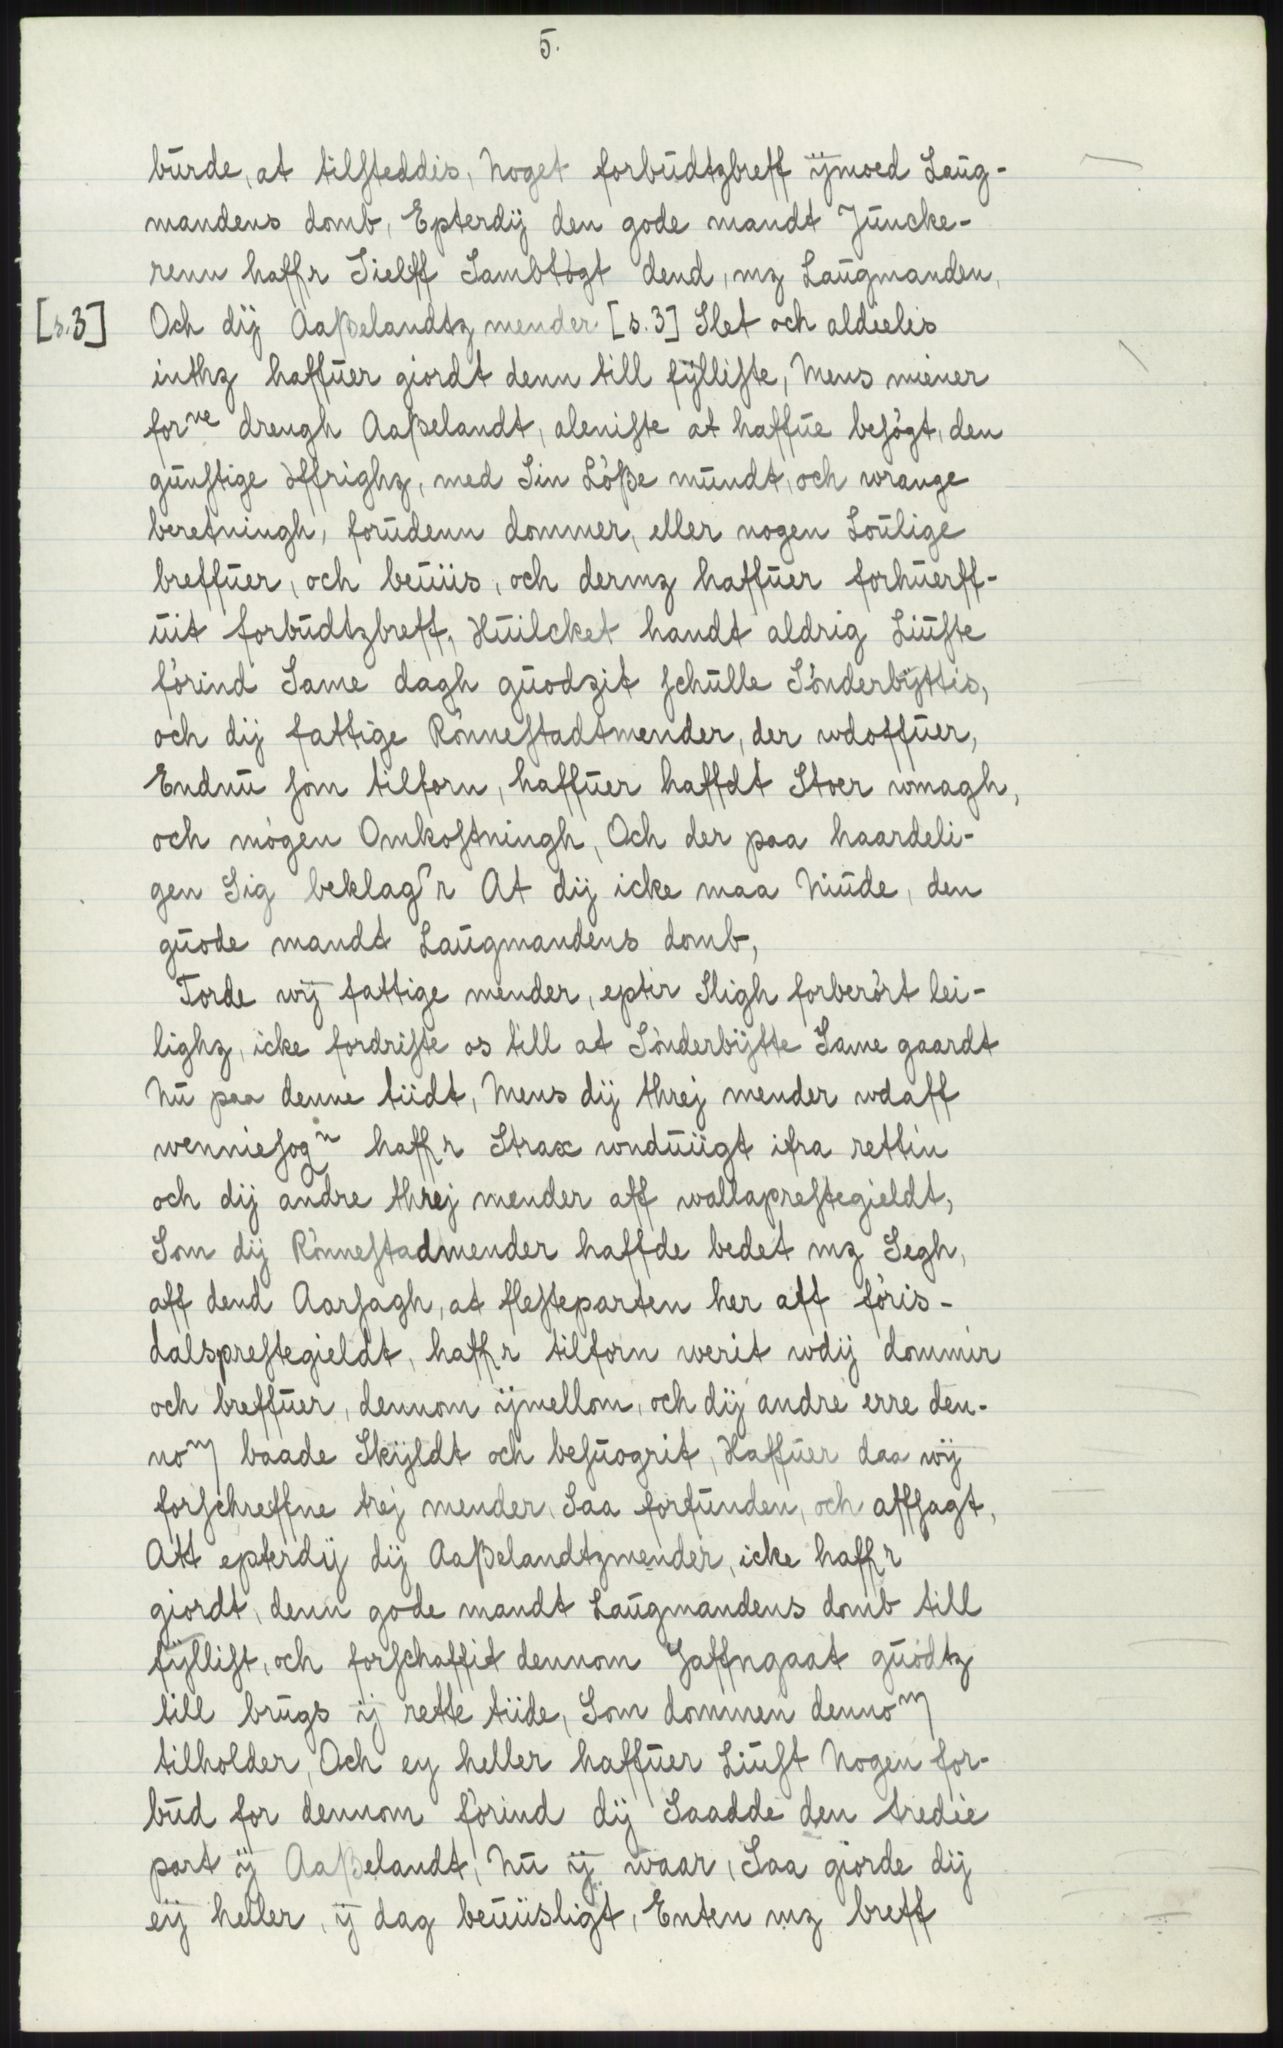 5.
burde, at tilsteddis, Noget forbudtzbreff ijmoed Laug-
mandens domb, Epterdij den gode mandt Juncke-
renn haffr Sielff Sambtögt dend, mz Laugmanden,
[s.3] Och dij Aaßelandtz mender [s.3] Slet och aldeelis
inthz haffuer giordt denn till fÿlliste, Mens miener
forne drengh Aaßelandt, aleniste at haffue besögt, den
gunstige öffrighz, med Sin Löße mundt, och wrange
beretningh, forudenn dommer, eller nogen Loulige
breffuer, och beuiis, och dermz haffuer forhuerff-
uit forbudtzbreff, Huilcket handt aldrig Liuste
förind Same dagh guodzit schulle Sönderbÿttis,
och dij fattige Rönnestadtmender, der wdoffuer,
Endnu som tilforn, haffuer haffdt Stoer wmagh,
och mögen Omkostningh, Och der paa haardeli-
gen Sig beklagr At dij icke maa Niude, den
guode mandt Laugmandens domb,
Torde wij fattige mender, eptir Sligh forberört lei-
lighz, icke fordriste os till at Sönderbÿtte Same gaardt
Nu paa denne tiidt, Mens dij threj mender wdaff
wenniesogn haffr Strax wnduiigt ifra rettin
och dij andre threj mender aff wallaprestegieldt,
Som dij Rönnestadmender haffde bedet mz Segh,
aff dend Aarsagh, at flesteparten her aff föris-
dalsprestegieldt, haffr tilforn werit wdij dommir
och breffuer, dennom ijmellom, och dij andre erre den-
nom baade Skÿldt och besuogrit, Haffuer daa wij
forschreffne trej mender, Saa forfunden, och affsagt,
Att epterdij dij Aaßelandtzmender, icke haffr
giordt, denn gode mandt Laugmandens domb till
fÿllist, och forschaffit dennom Jaffngaat guodtz
till brugs ij rette tiide, Som dommen dennom
tilholder, Och ey heller haffuer Liust Nogen for-
bud for dennom förind dij Saadde den tredie
part ij Aaßelandt, Nu ij waar, Saa giorde dij
eij heller, ij dag beuiisligt, Enten mz breff